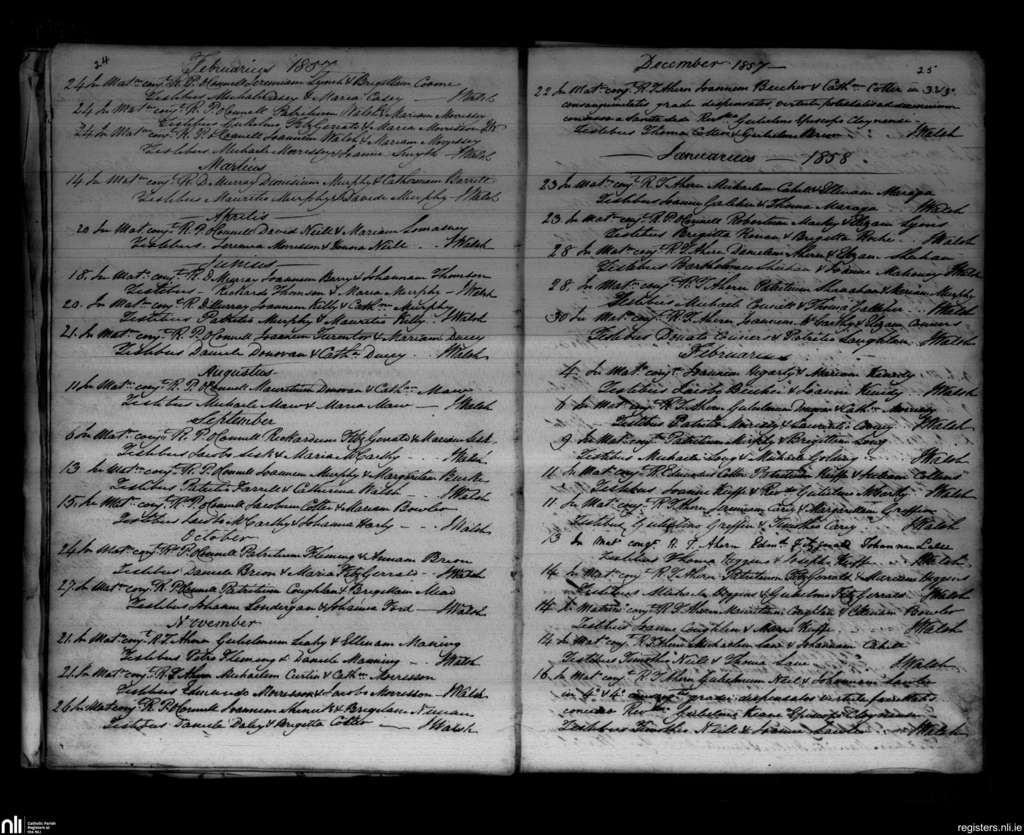 24
Februarius 1857
24 In Matm conj. R. P. O'Connell Jeremiam Lynch & Brigittam Coome
Testibus Michale Casey & Maria Casey — J Walsh
24 In Matm conj. R. P. O'Connell Patricium Walsh & Mariam Morrissy
Testibus Gulielmo FitzGerald & Maria Morrisson
24 In Matm conj. R. P. O'Connell Joannem Walsh & Mariam Morrissey
Testibus Michaele Morrissey & Joanna Smyth J Walsh
Martius
14 In Matm conj. R. D. Murray Dionisium Murphy & Catherinam Barrett
Testibus Mauritio Murphy & Davide Murphy J Walsh
Aprilis
20 In Matm conj. R. P. O'Connell David Neill & Mariam Lomasney
Testibus Jeremia Morrisson & Neill J Walsh
Junius
18 In Matm conj. R. D. Murray Joannem Barry & Johannam Thomson
Testibus Richardo Thomson & Maria Murphy J Walsh
20 In Matm conj. R. D. Murray Joannem Kelly & Cathm Murphy
Testibus Patritio Murphy & Mauritio Kelly J Walsh
21 In Matm conj. R. P. O'Connell Joannem & Mariam Ducey
Testibus Daniele Donovan & Cath Ducey J Walsh
Augustus
11 In Matm conj. R. P. O'Connell Mauritium Donovan & Cathm Maw
Testibus Michaele Maw & Maria Maw — J Walsh
September
6 In Matm conj. R. P. O'Connell Richardum FitzGerald & Mariam Sisk
Testibus Jacobo Sisk & Maria McCarthy J Walsh
13 In Matm conj. R. P. O'Connell Joannem Murphy & Margaritam Burke
Testibus Patritio Farrell & Catherina Walsh J Walsh
15 In Matm conj. R. P. O'Connell Jacobum Cotter & Mariam Bowler
Testibus Jacobo McCarthy & Johanna Harty J Walsh
October
24 In Matm conj. R. P. O'Connell Patritium Fleming & Annam Brion
Testibus Daniele Brion & Maria FitzGerald J Walsh
27 In Matm conj. R. P. O'Connell Patritium Coughlan & Brigittam Mead
Testibus Johanne Londrigan & Johanna Ford J Walsh
November
21 In Matm conj. R. T. Ahern Gulielmum Leahy & Ellenam Manning
Testibus Petro Fleming & Daniele Manning J Walsh
21 In Matm conj. R. T. Ahern Michaelem Curtin & Cathm Morrisson
Testibus Edmundo Morrisson & Jacobo Morrisson J Walsh
26 In Matm conj. R. P. O'Connell Joannem & Brigidam Nunan
Testibus Daniele Daly & Brigitta Cotter J Walsh
25
December 1857
22 In Matm conj. R. T. Ahern Joannem Beecher & Cathm Cotter in 3 & 3
consanguinitatis gradu dispensatos, virtute potestatis ad decennium
concessa a Sancta Sede Revmo Gulielmo Episcopo Cloynensi
Testibus Thoma Cotter & Gulielmo Brion J Walsh
Januarius — 1858
23 In Matm conj. R. T. Ahern Michaelem Cahill & Ellenam Meraga
Testibus Joanne Galiher & Thoma Meraga J Walsh
23 In Matm conj. R. P. O'Connell Robertum Macky & Elizam Lyons
Testibus Brigitta Ronan & Brigitta Roche J Walsh
28 In Matm conj. R. T. Ahern Danielem Ahern & Elizam Shehan
Testibus Bartholomeo Shehan & Joanne Mahony J Walsh
28 In Matm conj. R. T. Ahern Patritium Shanahan & Mariam Murphy
Testibus Michaele & Thoma Gallaher J Walsh
30 In Matm conj. R. T. Ahern Joannem McCarthy & Elizam Conners
Testibus Donato Conners & Patritio Laughlin J Walsh
Februarius
4 In Matm conj. Joannem Hogarty & Mariam Kenedy
Testibus Jacobo Beecher & Joanne Kenedy J Walsh
6 In Matm conj. R. T. Ahern Gulielmum Donovan & Cathm
Testibus Patritio & J Walsh
9 In Matm conj. Patritium Murphy & Brigittam Long
Testibus Michaele Long & J Walsh
11 In Matm conj. R. Edmundus Cotter Patritium Keeffe & Collins
Testibus Joanne Keeffe & Revdo Gulielmo McCarthy J Walsh
11 In Matm conj. R. T. Ahern Jeremiam Carey & Margaritam Griffin
Testibus Gulielmo Griffin & Timotheo Carey J Walsh
13 In Mat conj. R. T. Ahern Edm FitzGerald Johannam
Testibus Thoma Higgins & Joseph Keeffe J Walsh
14 In Matm conj. R. T. Ahern Patritium FitzGerald & Mariam Higgins
Testibus Michaele Higgins & Gulielmo FitzGerald J Walsh
14 In Matm conj. R. T. Ahern Mauritium Coughlan & Mariam Bowler
Testibus Joanne Coughlan & Maria Keeffe J Walsh
14 In Matm conj. R. T. Ahern Michaelem Lane & Johannam Cahill
Testibus Timotheo Neill & Thoma Lane J Walsh
16 In Matm conj. R. T. Ahern Gulielmum Neill & Johannam Lawlor
in 4 & 4 gradu dispensatos virtute facultatis
concessa Revmo Gulielmo Keane Episcopo Cloynensi
Testibus Timotheo Neill & Joanne Lawlor J Walsh
nli
Catholic Parish
Registers at
the NLI
registers.nli.ie